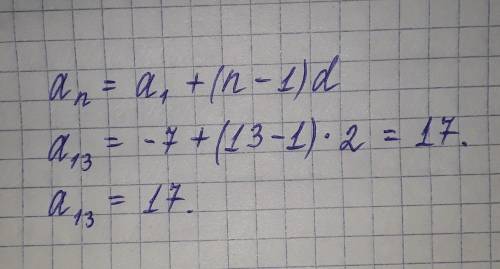 aₙ = a₁ + (n - 1)d
a₁₃ = -7 + (13 - 1) · 2 = 17.
a₁₃ = 17.